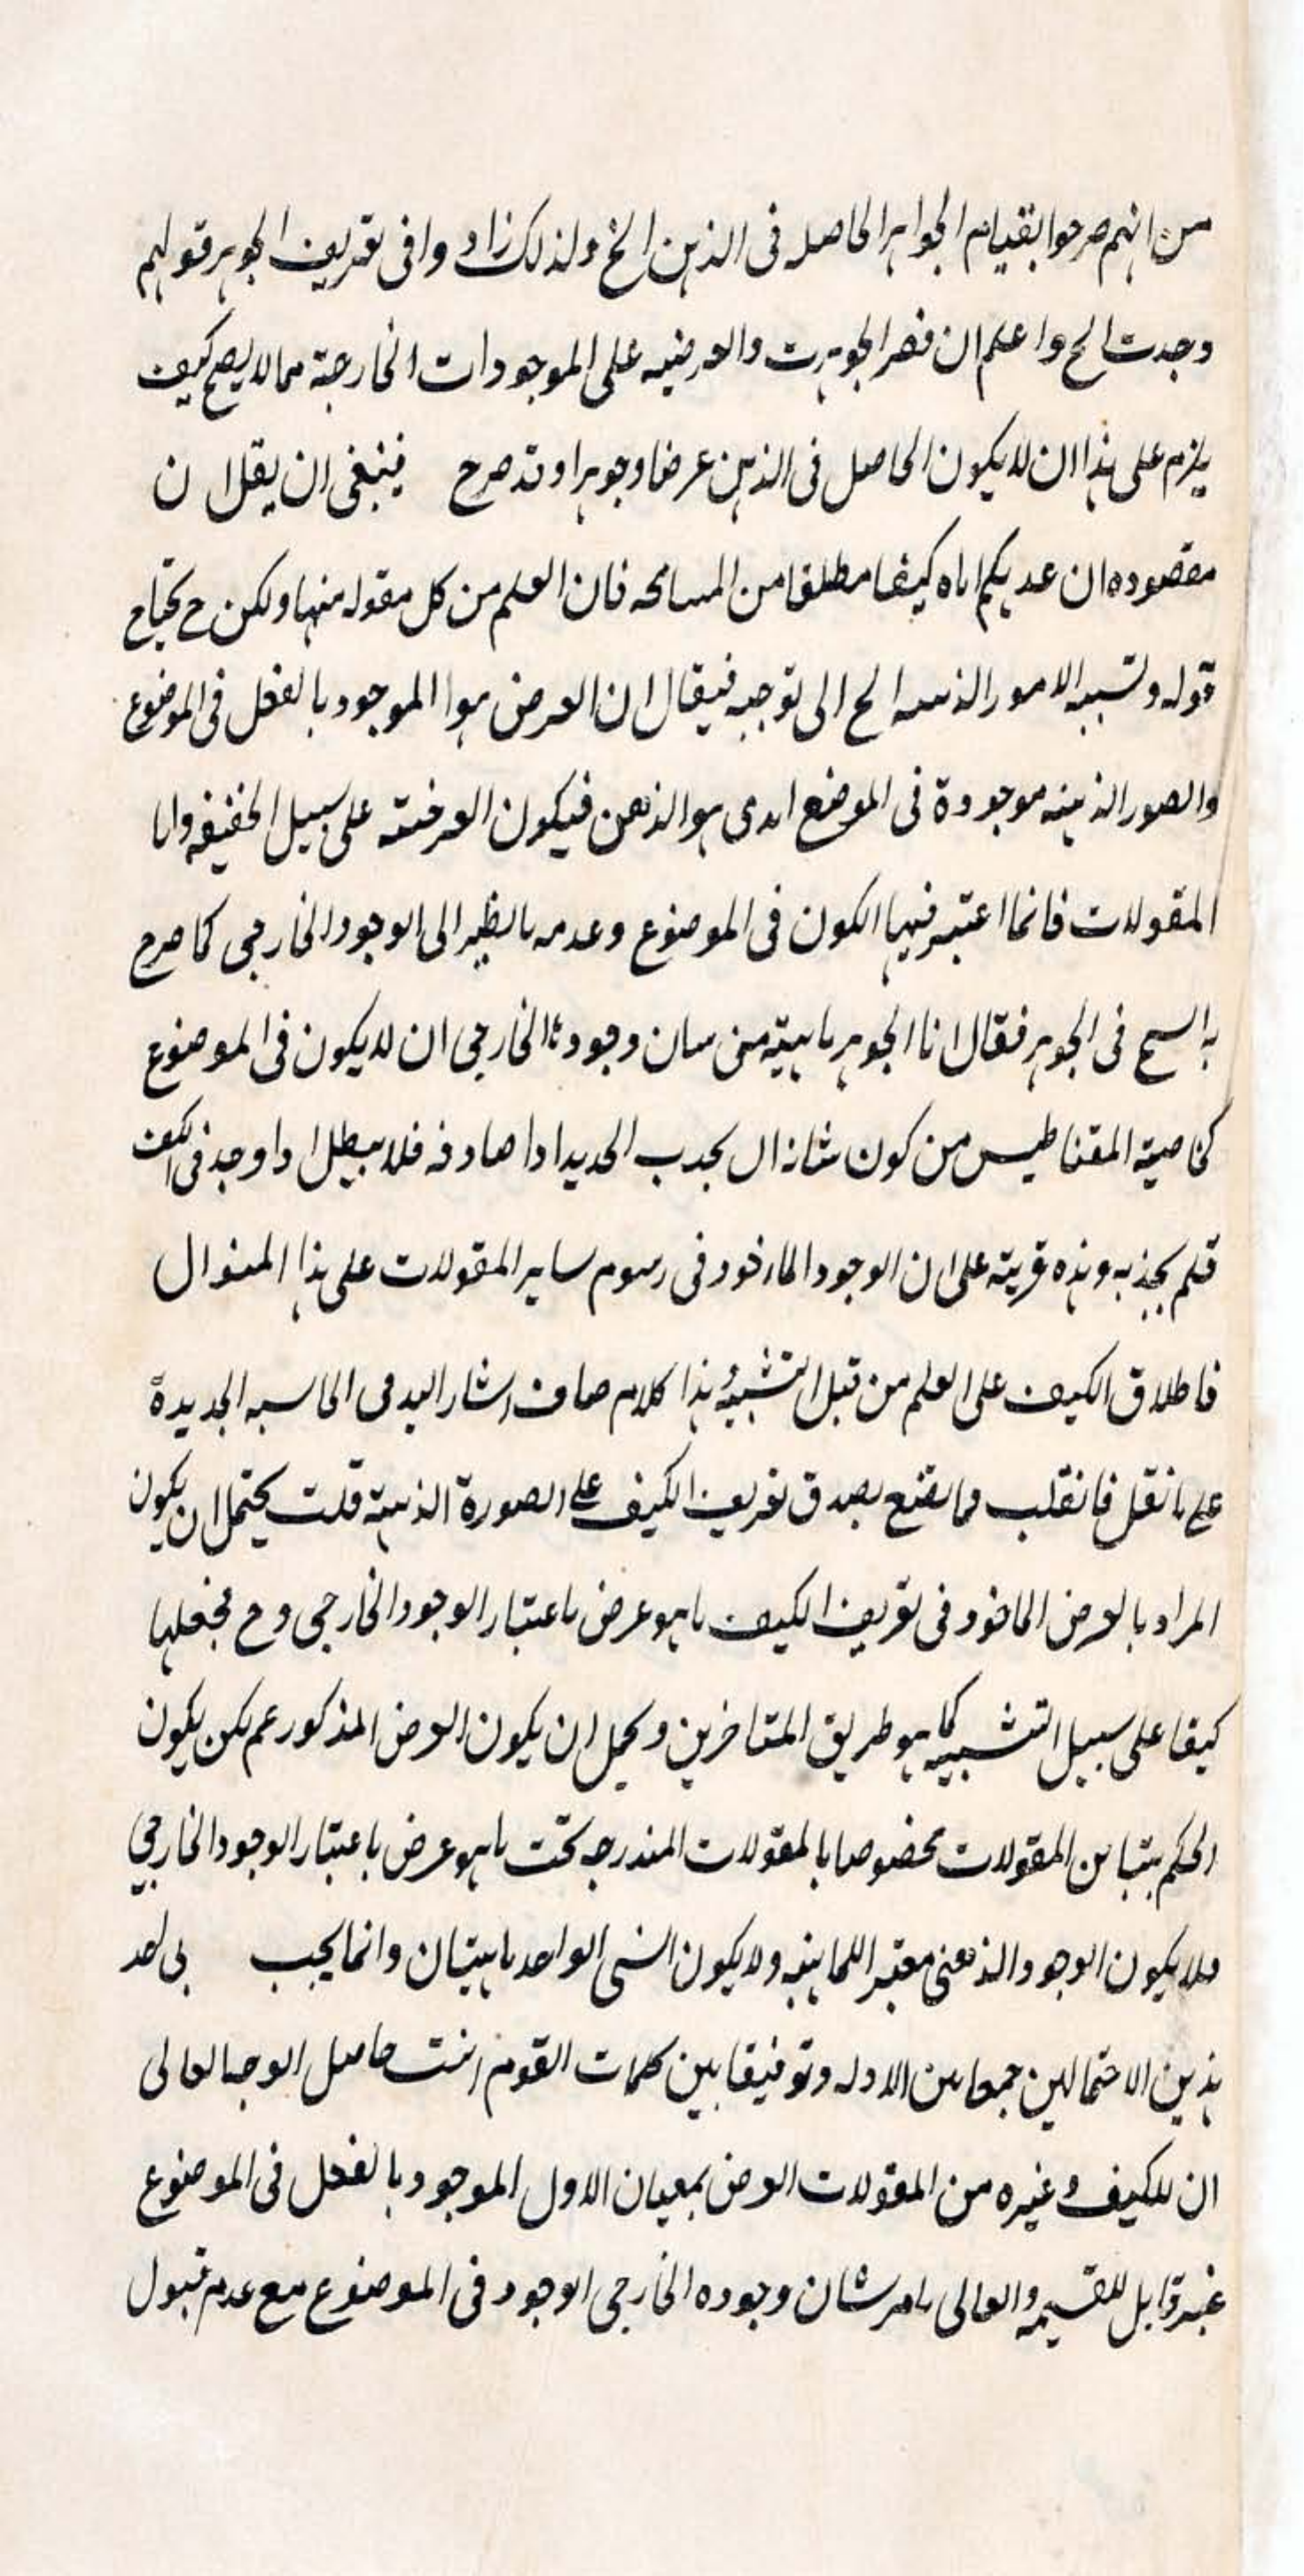 من انهم صرحوا بقيام الجواهر الحاصله فى الذهن الخ ولذلك زادوا فى تعريف الجوهر قولهم
وجدت الخ واعلم ان قصر الجوهرية والعرضيه على الموجودات الخارجة مما لا يصح كيف
يلزم على هذا ان لا يكون الحاصل فى الذهن عرضا وجوهرا وقد صرح فينبغى ان يقال ان
مقصوده ان عديكم اياه كيفا مطلقا من المسامحه فان العلم من كل مقوله منها ولكن ح يحتاج
قوله وتشبيه الامور الذهنيه الخ الى توجيه فيقال ان العرض هو الموجود بالفعل فى الموضوع
والصور الذهنيه موجودة فى الموضع الذى هو الذهن فيكون العرضية على سبيل الحقيقه واما
المقولات فانما اعتبر فيها الكون فى الموضوع وعدمه بالنظر الى الوجود الخارجى كما صرح
به الشيخ فى الجوهر فقال انا الجوهر ماهيته من شان وجودها الخارجى ان لا يكون فى الموضوع
كخاصية المقناطيس من كون شانه ان يجدب الحديد اذا صادفه فلا يبطل اذا وجد فى الكف
فلم يجذبه وهذه قرينة على ان الوجود الماءخود فى رسوم ساير المقولات على هذا المنوال
فاطلاق الكيف على العلم من قبل التشبيه هذا كلام صاف اشار اليه فى الحاسيه الجديدة
على ما نقل فانقلب فما يقنع بصدق تعريف الكيف على الصورة الذهنية قلت يحتمل ان يكون
المراد بالعرض الماخود فى تعريف الكيف ما هو عرض باعتبار الوجود الخارجى وح فجعلها
كيفا على سبيل التشبيه كما هو طريق المتاخرين ويحمل ان يكون العرض المذكور عم لكن يكون
الحكم بتباين المقولات مخصوصا بالمقولات المندرجه تحت ما هو عرض باعتبار الوجود الخارجى
فلا يكون الوجود الذهنى معتبر اللماهيه ولا يكون الشى الواحد ماهيتان وانما يجب لى احد
هذين الاحتمالين جمعا بين الادله وتوفيقا بين كلمات القوم انت حاصل الوجه العالى
ان للكيف وغيره من المقولات العرض بمعيان الاول الموجود بالفعل فى الموضوع
غير قابل للقسيمه والعالى بامر شان وجوده الخارجى الوجود فى الموضوع مع عدم قبول